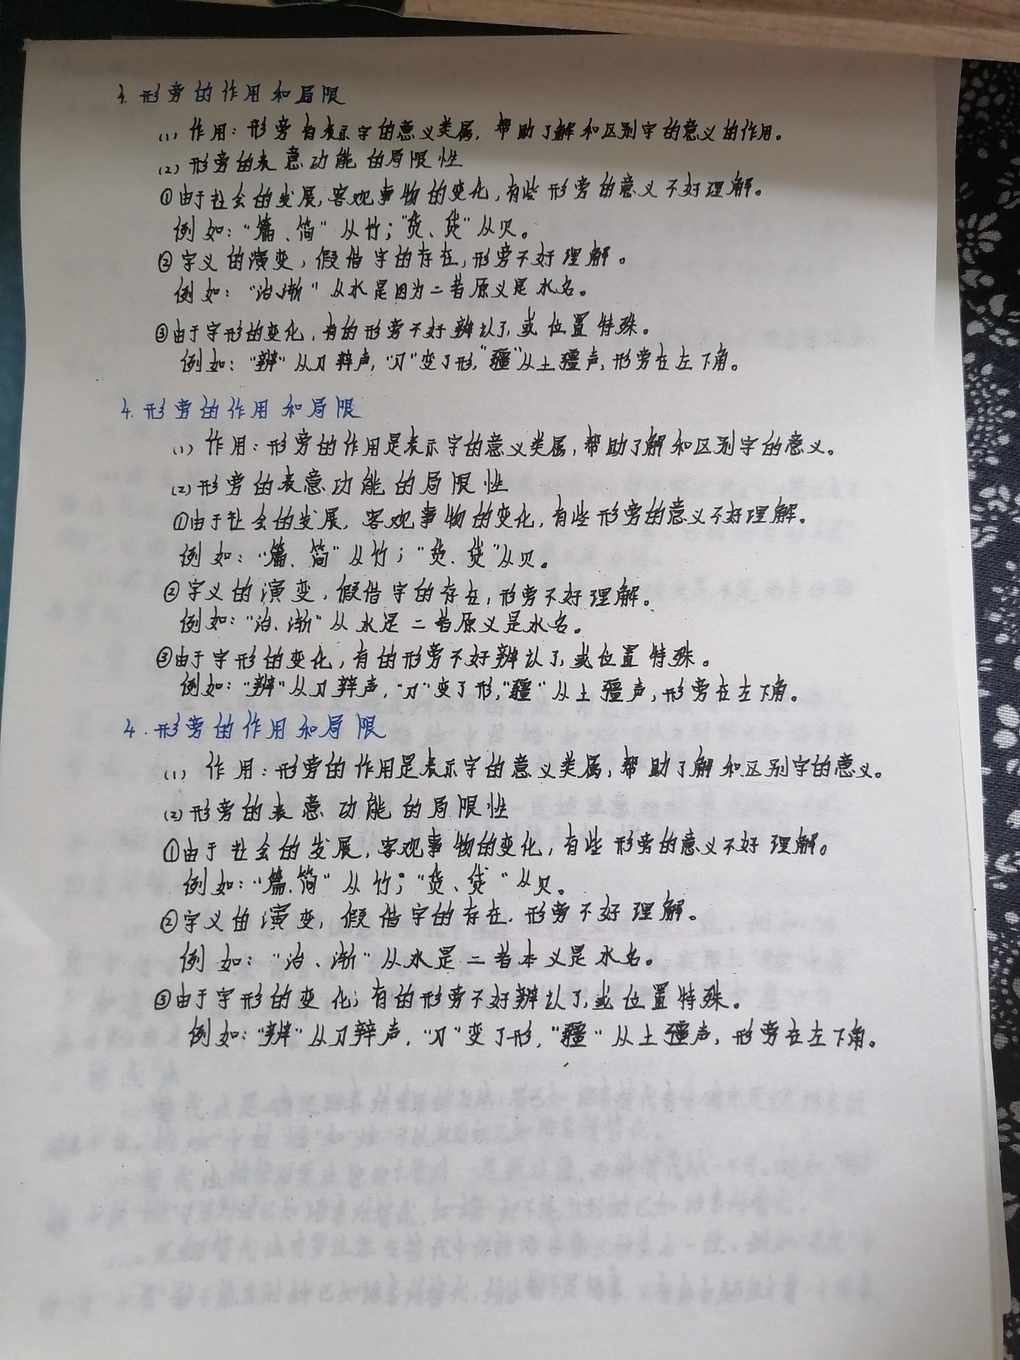 4. 形旁的作用和局限
(1) 作用：形旁有表示字的意义类属，帮助了解和区别字的意义的作用。
(2) 形旁的表意功能的局限性
①由于社会的发展，客观事物的变化，有些形旁的意义不好理解。
例如：“篇、简”从竹；“货、贷”从贝。
②字义的演变，假借字的存在，形旁不好理解。
例如：“治、渐”从水是因为二者原义是水名。
③由于字形的变化，有的形旁不好辨认了，或位置特殊。
例如：“辨”从刀辡声，“刀”变了形，“疆”从土彊声，形旁在左下角。
4. 形旁的作用和局限
(1) 作用：形旁的作用是表示字的意义类属，帮助了解和区别字的意义。
(2) 形旁的表意功能的局限性
①由于社会的发展，客观事物的变化，有些形旁的意义不好理解。
例如：“篇、简”从竹；“货、贷”从贝。
②字义的演变，假借字的存在，形旁不好理解。
例如：“治、渐”从水是二者原义是水名。
③由于字形的变化，有的形旁不好辨认了，或位置特殊。
例如：“辨”从刀辡声，“刀”变了形，“疆”从土彊声，形旁在左下角。
4. 形旁的作用和局限
(1) 作用：形旁的作用是表示字的意义类属，帮助了解和区别字的意义。
(2) 形旁的表意功能的局限性
①由于社会的发展，客观事物的变化，有些形旁的意义不好理解。
例如：“篇、简”从竹；“货、贷”从贝。
②字义的演变，假借字的存在，形旁不好理解。
例如：“治、渐”从水是二者本义是水名。
③由于字形的变化；有的形旁不好辨认了，或位置特殊。
例如：“辨”从刀辡声，“刀”变了形，“疆”从土彊声，形旁在左下角。